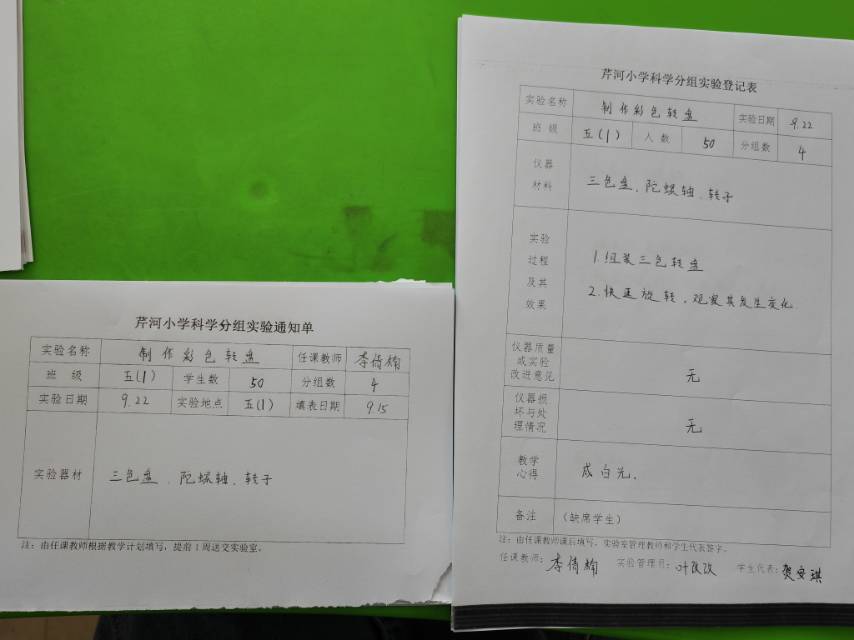 芹河小学科学分组实验通知单
实验名称 制作彩色转盘 任课教师 李倩楠
班 级 五(1) 学生数 50 分组数 4
实验日期 9.22 实验地点 五(1) 填表日期 9.15
实验器材 三色盘、陀螺轴、转子
注：由任课教师根据教学计划填写，提前1周送交实验室。
芹河小学科学分组实验登记表
实验名称 制作彩色转盘 实验日期 9.22
班 级 五(1) 人 数 50 分组数 4
仪器
材料
三色盘、陀螺轴、转子
实验
过程
及其
效果
1.组装三色转盘
2.快速旋转，观察其发生变化.
仪器质量
或实验
改进意见
无
仪器损
坏与处
理情况
无
教学
心得
成白光.
备注 （缺席学生）
注：由任课教师课后填写，实验室管理教师和学生代表签字。
任课教师： 李倩楠 实验管理员： 叶改改 学生代表： 贺安琪